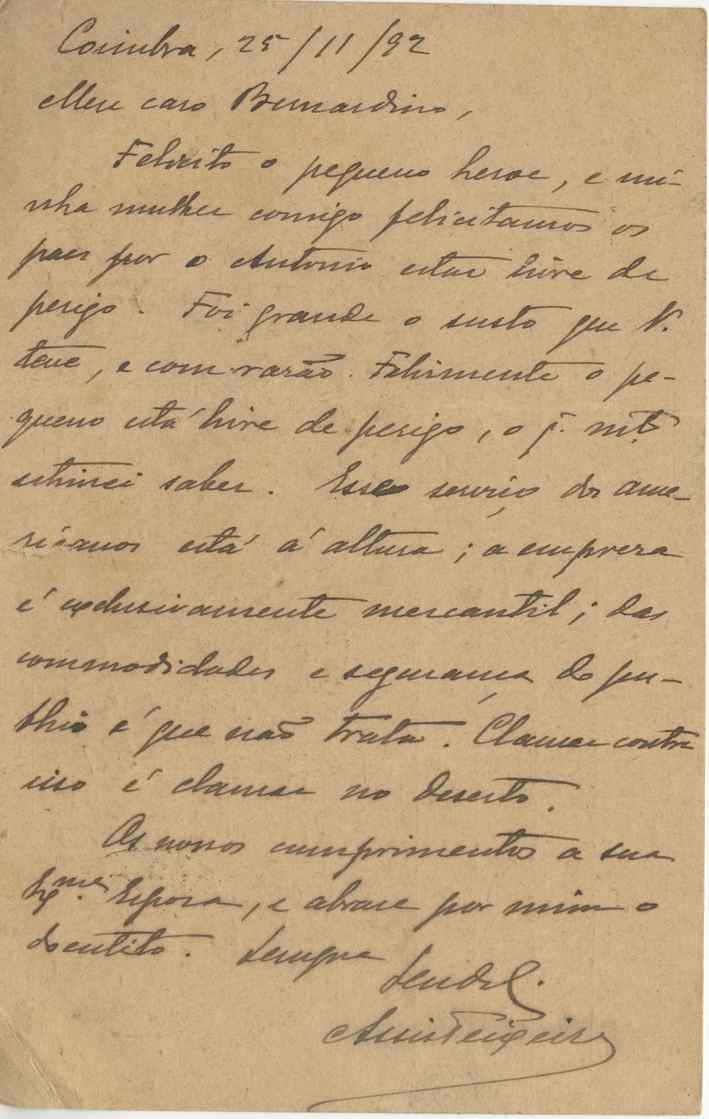 Coimbra, 25/11/92
Meu caro Bernardino,
Felicito o pequeno heroe, e mi-
nha mulher comigo felicitamos os
paes por o Antonio estar livre de
perigo. Foi grande o susto que V.
teve, e com razão. Felismente o pe-
queno está livre de perigo, o q. mto
estimei saber. Esse serviço dos ame-
ricanos está á altura; a empreza
é exclusivamente mercantil; das
commodidades e segurança do pu-
blico é que não trata. Clamar contra
isso é clamar no deserto.
Os nossos cumprimentos a sua
Exma. Esposa, e abrace por mim o
doentito. Sempre
Assis Teixeira